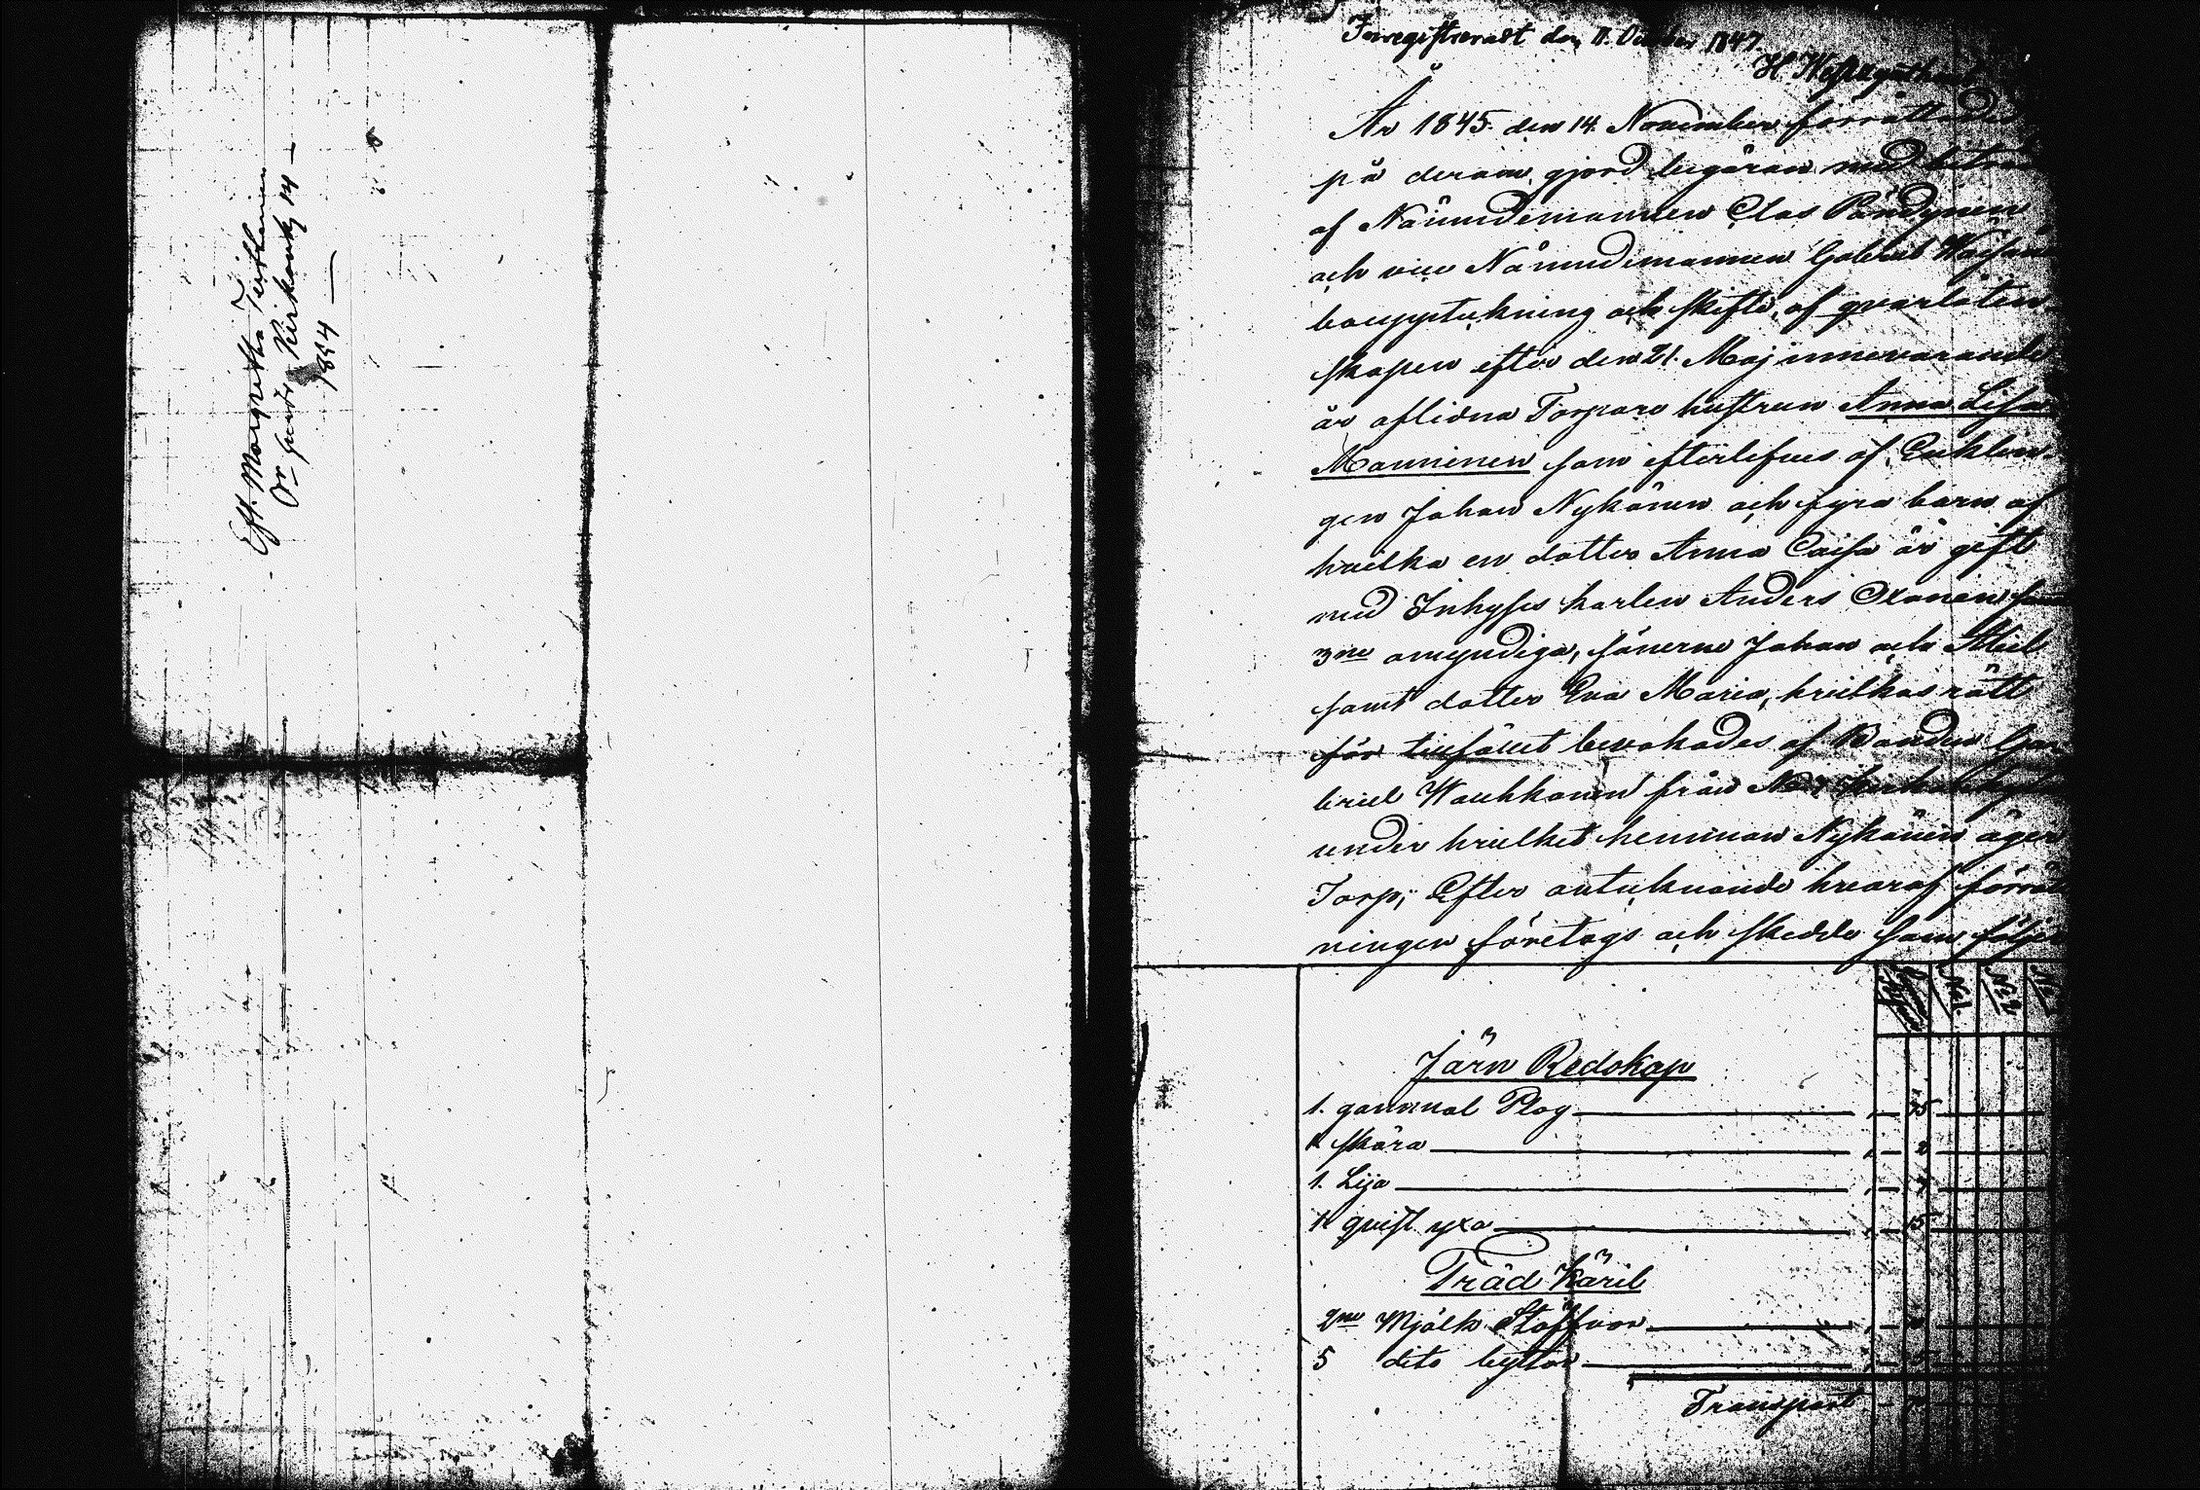 Eft. Margretha
Or
1844
Inregistreradt den 11. October 1847.
År 1845. den 14. November förrättades
på derom gjord begäran med
af Nämndemannen Clas Pöndynen
och vice Nämndemannen Gabriel
bouppteckning och skifte, af qvarlåten-
skapen efter den 21. Maj innevarande
år aflidna Torpare hustrun Anna Lisa
Manninen som efterlefves af Enklin-
gen Johan Nykänen och fyra barn af
hvilka en dotter Anna Caisa är gift
med Inhyses karlen Anders Oxanen
3ne omyndiga, sönerne Johan och Abel
samt dotter Eva Maria, hvilkas rätt
för tillfället bevakades af Bonden Ga-
briel Wauhkonen från No 7
under hvilket hemman Nykänen äger
Torp; Efter antecknande hvaraf förrätt
ningen företogs och skedde som följer
No 1.
No 2
Järn Redskap
1. gammal Plog 75
1 skära 2
1. Lija 7
1 qvist yxa 15
Träd Käril
2ne Mjölk Stäffvor
5 dito byttor 5
Transport